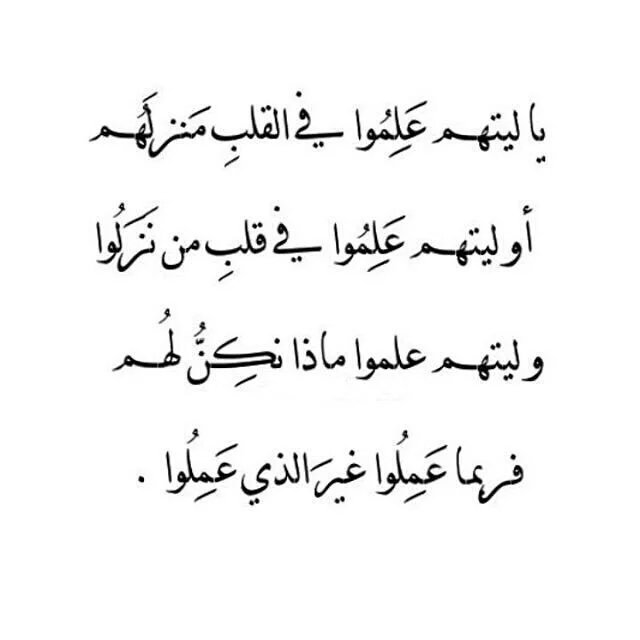 يا ليتهم عَلِمُوا في القلبِ مَنزلَهُم
أو ليتهم عَلِمُوا في قلبِ من نَزَلُوا
وليتهم علموا ماذا نكِنُّ لهُم
فربما عَمِلُوا غيرَ الذي عَمِلُوا .